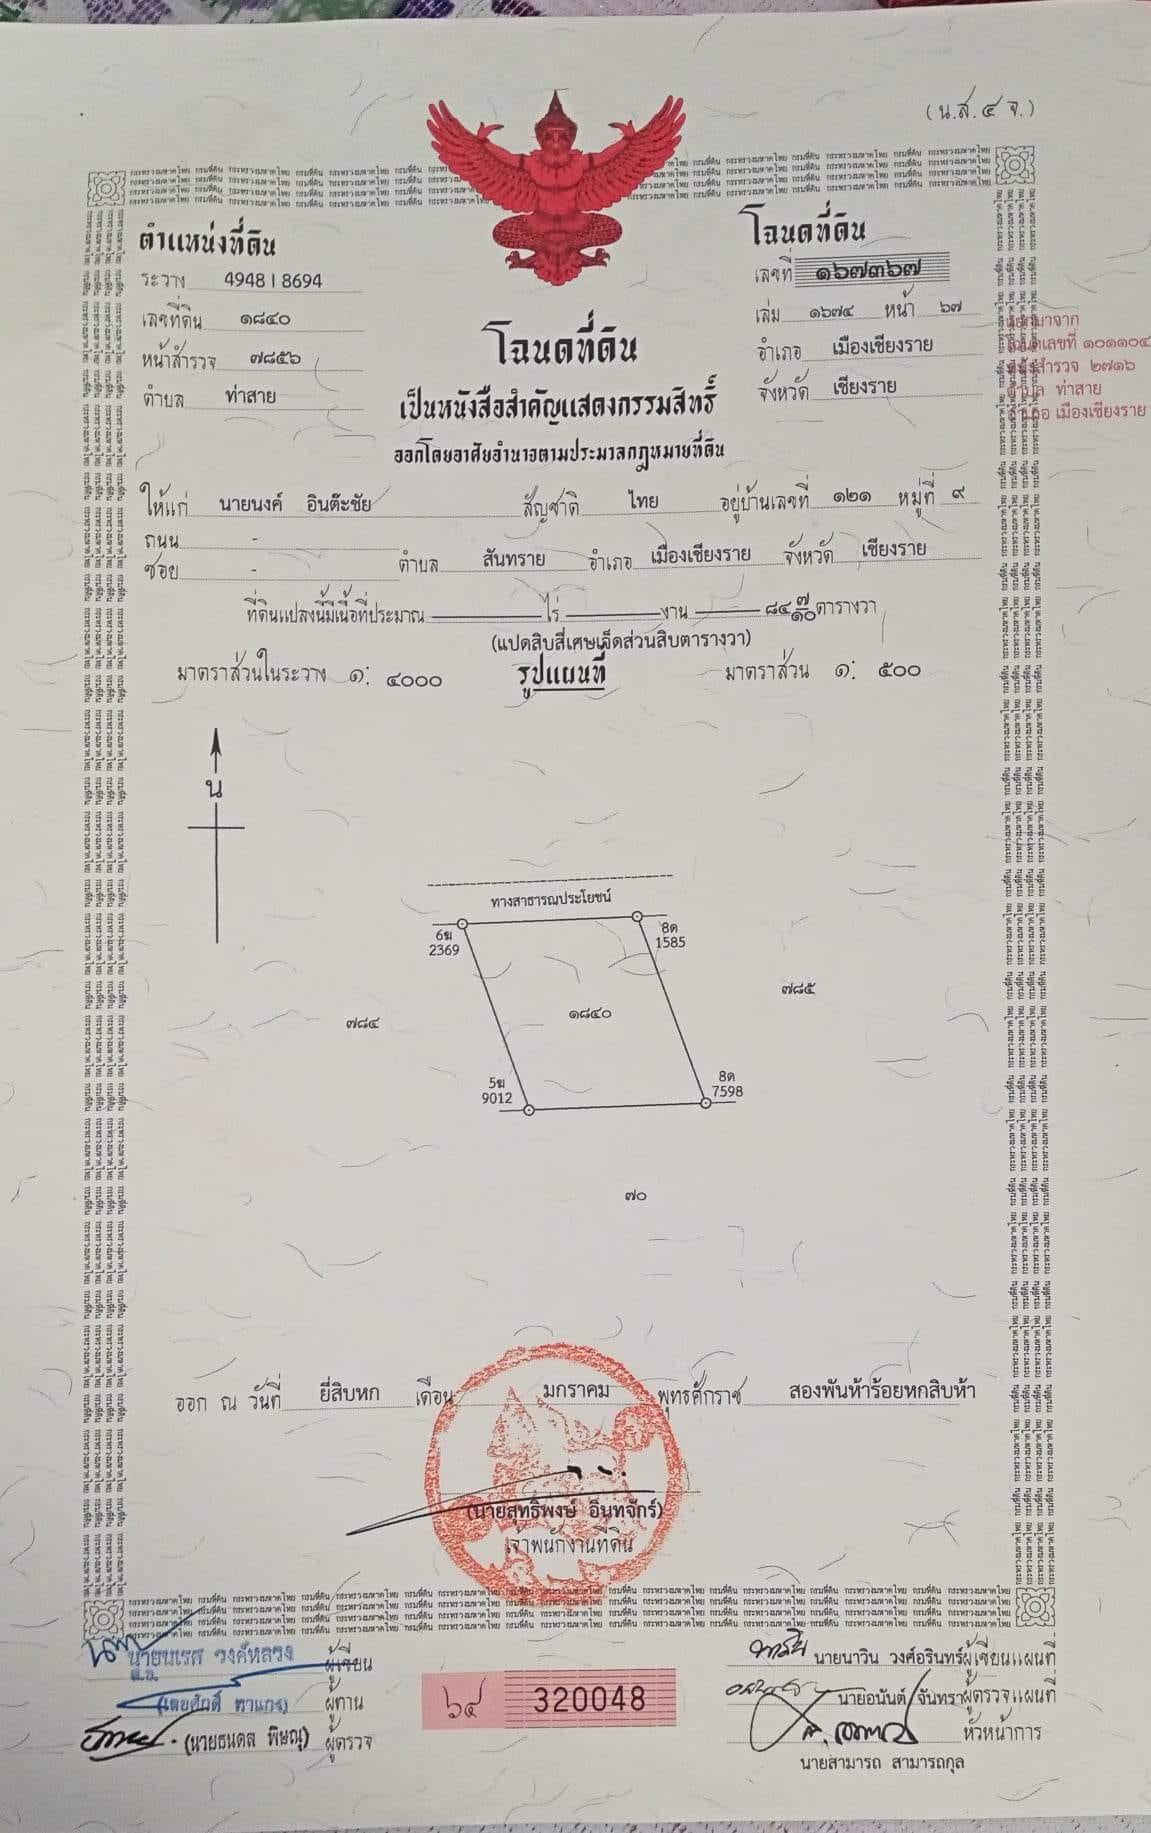 (น.ส.๔ จ.)
ตำแหน่งที่ดิน
ระวาง 4948 I 8694
เลขที่ดิน ๑๘๔๐
หน้าสำรวจ ๗๘๕๖
ตำบล ท่าสาย
โฉนดที่ดิน
เลขที่ ๑๖๗๓๖๗
เล่ม ๑๖๗๔ หน้า ๖๗
อำเภอ เมืองเชียงราย
จังหวัด เชียงราย
โฉนดเลขที่ ๑๐๑๑๐๔
๒๗๑๖
ตำบล ท่าสาย
อำเภอ เมืองเชียงราย
โฉนดที่ดิน
เป็นหนังสือสำคัญแสดงกรรมสิทธิ์
ออกโดยอาศัยอำนาจตามประมวลกฎหมายที่ดิน
ให้แก่ นายนงค์ อินต๊ะชัย สัญชาติ ไทย อยู่บ้านเลขที่ ๑๒๑ หมู่ที่ ๙
ถนน -
ซอย - ตำบล สันทราย อำเภอ เมืองเชียงราย จังหวัด เชียงราย
ที่ดินแปลงนี้มีเนื้อที่ประมาณ ไร่ งาน ๘๔ ๗/๑๐ ตารางวา
(แปดสิบสี่เศษเจ็ดส่วนสิบตารางวา)
มาตราส่วนในระวาง ๑: ๔๐๐๐ รูปแผนที่ มาตราส่วน ๑: ๕๐๐
น
ทางสาธารณประโยชน์
6ฆ
2369
8ด
1585
๗๘๔
๑๘๔๐
๗๘๕
5ฆ
9012
8ด
7598
๗๐
ออก ณ วันที่ ยี่สิบหก เดือน มกราคม พุทธศักราช สองพันห้าร้อยหกสิบห้า
(นายสุทธิพงษ์ อินทจักร์)
เจ้าพนักงานที่ดิน
นายนเรศ วงค์หลวง ผู้เขียน
ผู้ทาน
(นายธนดล พิษณุ) ผู้ตรวจ
๖๔ 320048
นายนาวิน วงศ์อรินทร์ ผู้เขียนแผนที่
นายอนันต์ จันทรา ผู้ตรวจแผนที่
หัวหน้าการ
นายสามารถ สามารถกุล